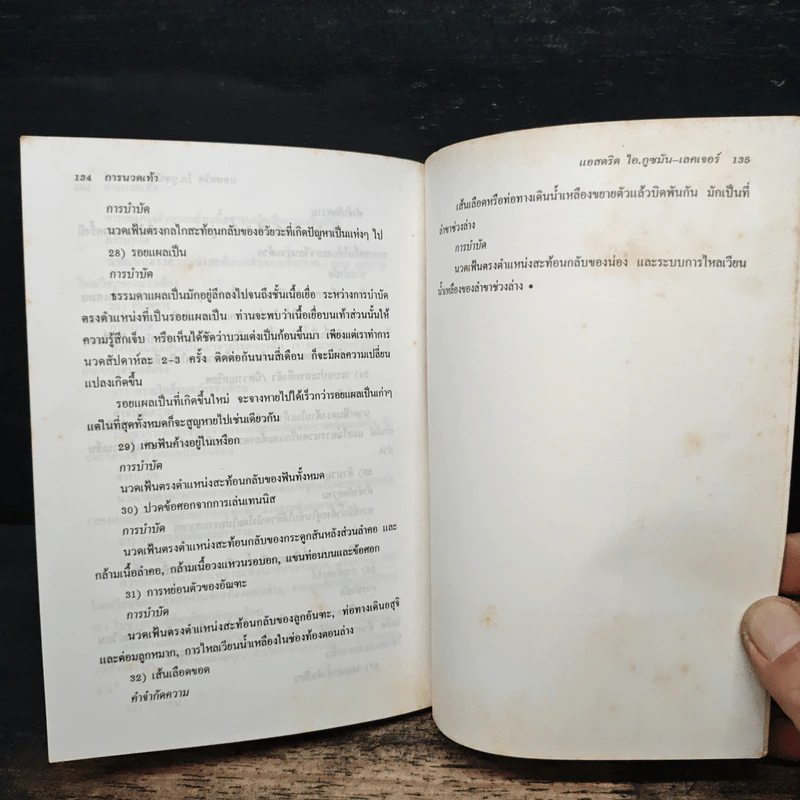 134 การนวดเท้า
การบำบัด
นวดเฟ้นตรงกลไกสะท้อนกลับของอวัยวะที่เกิดปัญหาเป็นแห่งๆ ไป
28) รอยแผลเป็น
การบำบัด
ธรรมดาแผลเป็นมักอยู่ลึกลงไปจนถึงชั้นเนื้อเยื่อ ระหว่างการบำบัด
ตรงตำแหน่งที่เป็นรอยแผลเป็น ท่านจะพบว่าเนื้อเยื่อบนเท้าส่วนนั้นให้
ความรู้สึกเจ็บ หรือเห็นได้ชัดว่าบวมเต่งเป็นก้อนขึ้นมา เพียงแต่เราทำการ
นวดสัปดาห์ละ 2-3 ครั้ง ติดต่อกันนานสี่เดือน ก็จะมีผลความเปลี่ยน
แปลงเกิดขึ้น
รอยแผลเป็นที่เกิดขึ้นใหม่ จะจางหายไปได้เร็วกว่ารอยแผลเป็นเก่าๆ
แต่ในที่สุดทั้งหมดก็จะสูญหายไปเช่นเดียวกัน
29) เศษฟันค้างอยู่ในเหงือก
การบำบัด
นวดเฟ้นตรงตำแหน่งสะท้อนกลับของฟันทั้งหมด
30) ปวดข้อศอกจากการเล่นเทนนิส
การบำบัด
นวดเฟ้นตรงตำแหน่งสะท้อนกลับของกระดูกสันหลังส่วนลำคอ และ
กล้ามเนื้อลำคอ, กล้ามเนื้อวงแหวนรอบอก, แขนท่อนบนและข้อศอก
31) การหย่อนตัวของอัณฑะ
การบำบัด
นวดเฟ้นตรงตำแหน่งสะท้อนกลับของลูกอันฑะ, ท่อทางเดินอสุจิ
และต่อมลูกหมาก, การไหลเวียนน้ำเหลืองในช่องท้องตอนล่าง
32) เส้นเลือดขอด
คำจำกัดความ
แอสตริด ไอ.กูซมัน-เลคเจอร์ 135
เส้นเลือดหรือท่อทางเดินน้ำเหลืองขยายตัวแล้วบิดพันกัน มักเป็นที่
ลำขาช่วงล่าง
การบำบัด
นวดเฟ้นตรงตำแหน่งสะท้อนกลับของน่อง และระบบการไหลเวียน
น้ำเหลืองของลำขาช่วงล่าง •